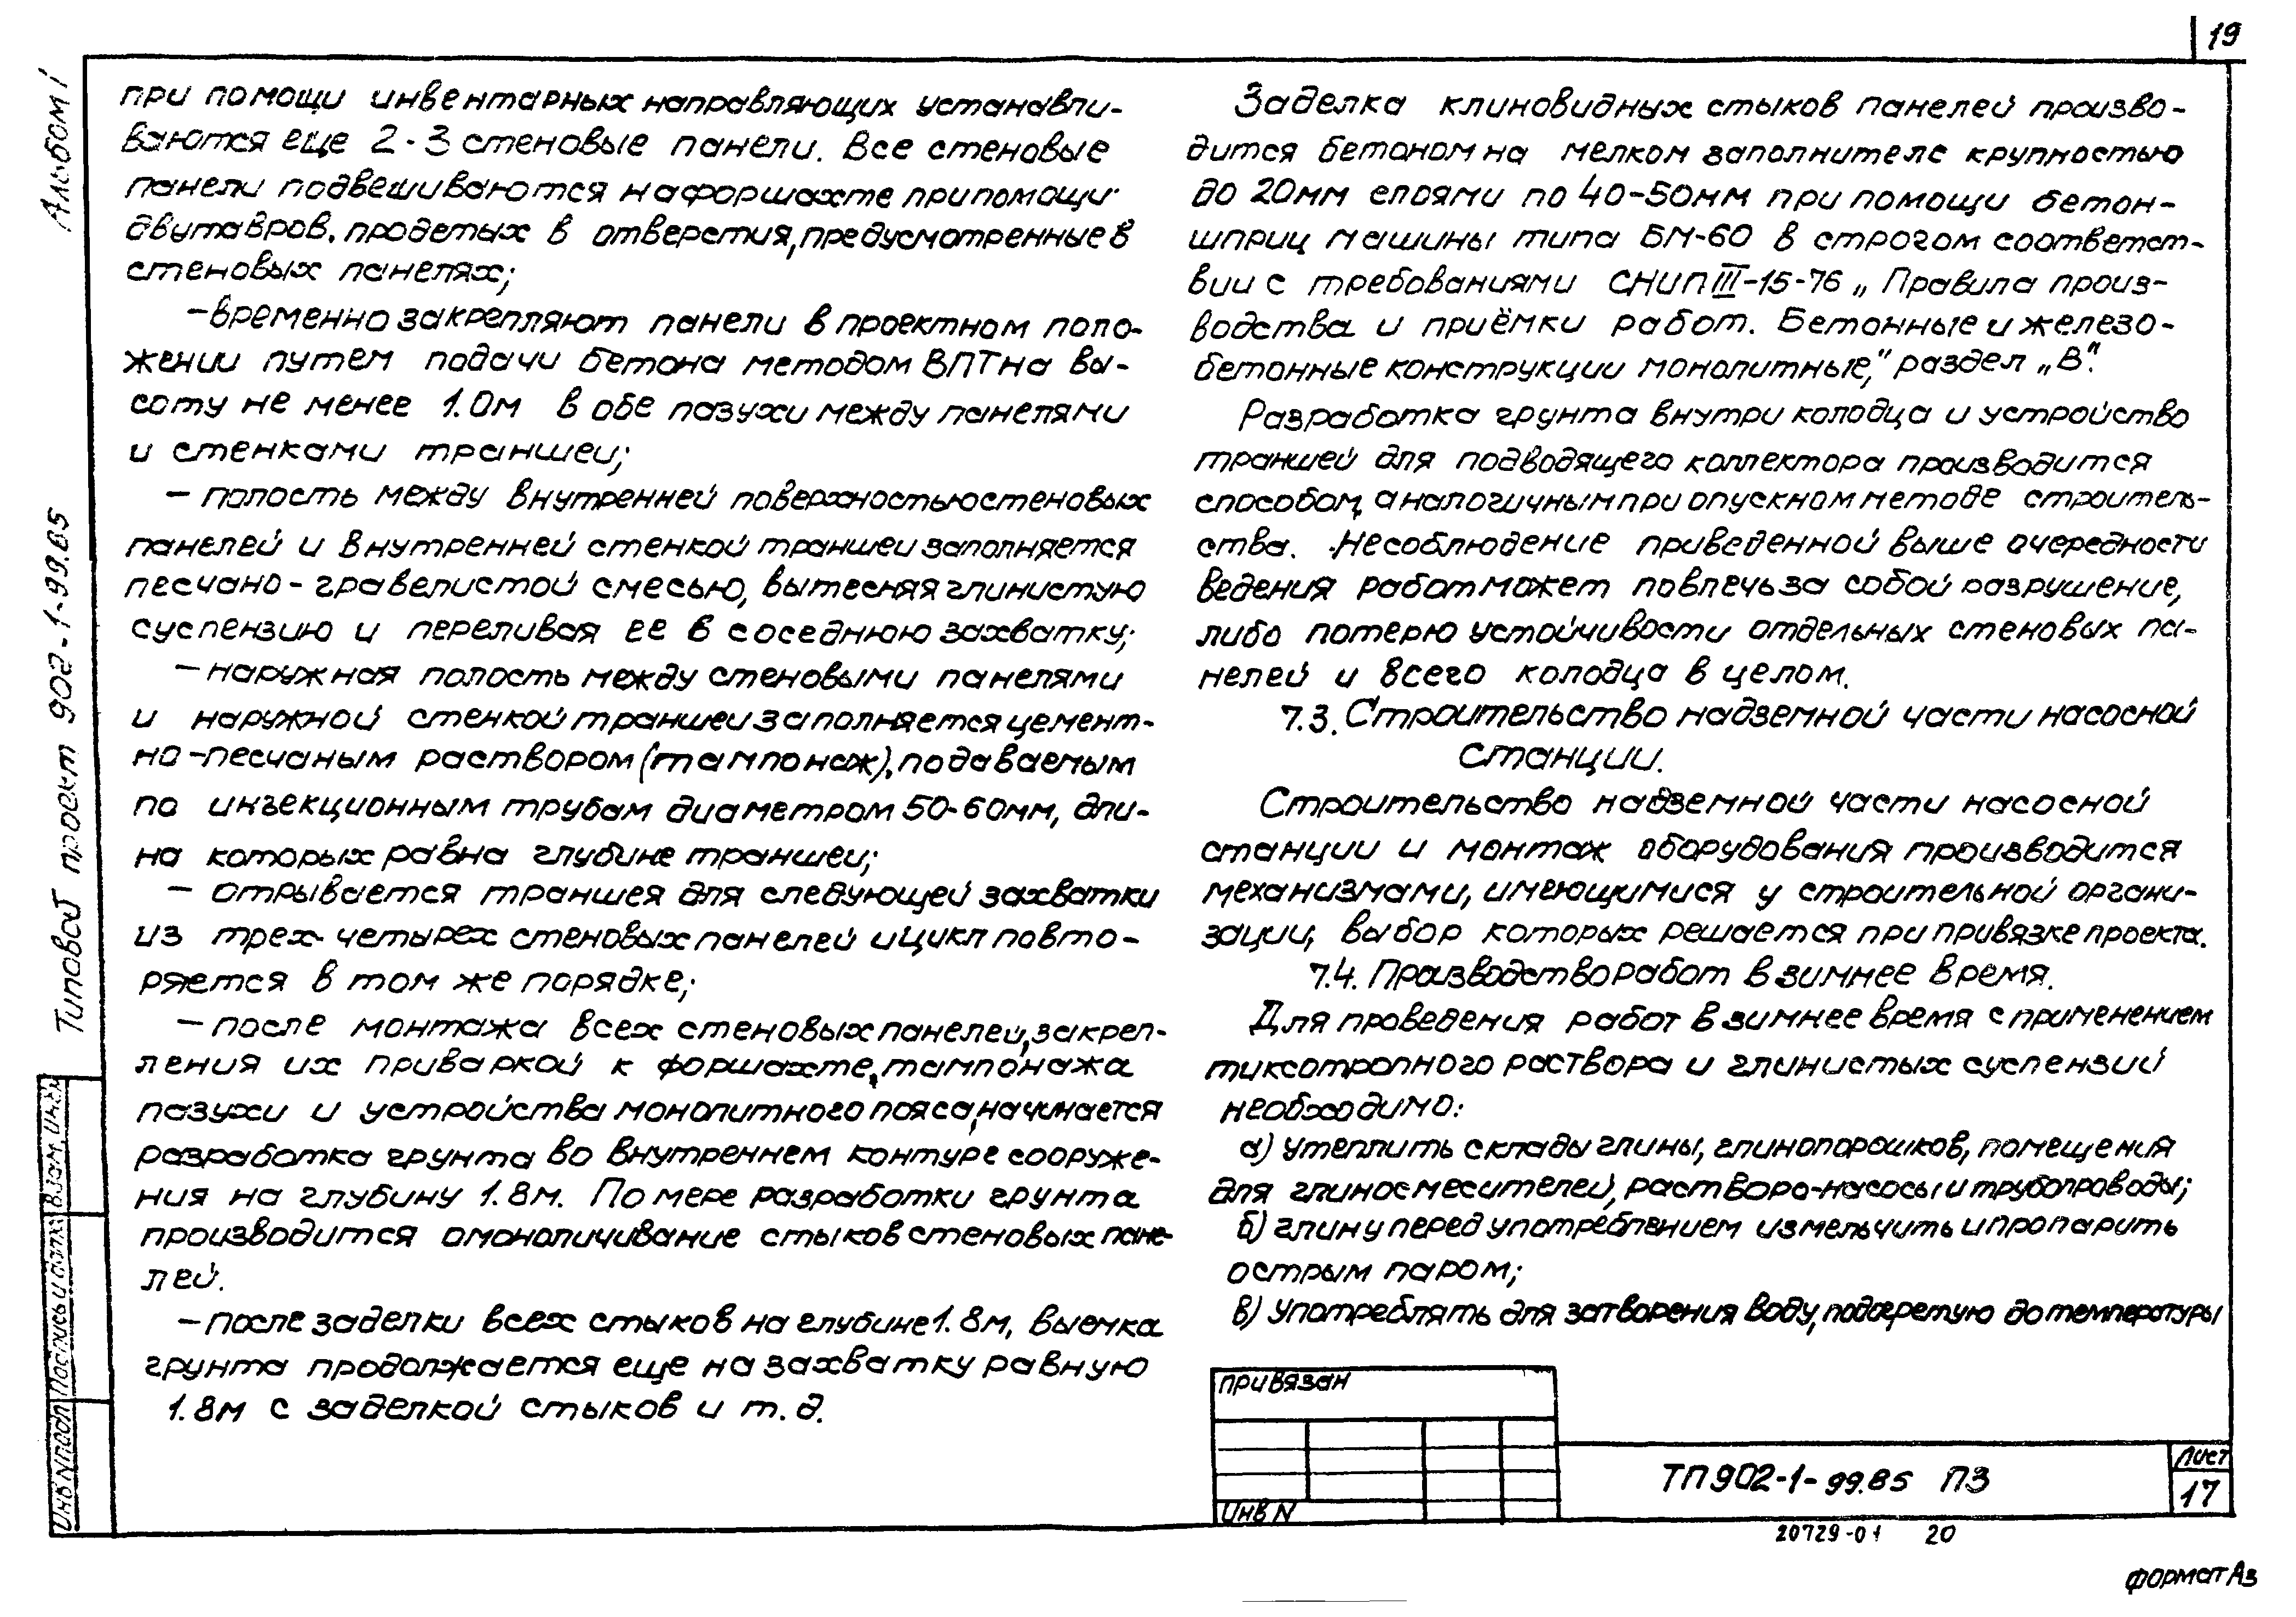 19
Альбом I
Типовой проект 902-1-99.85
при помощи инвентарных направляющих устанавли-
ваются еще 2-3 стеновые панели. Все стеновые
панели подвешиваются на форшахте при помощи
двутавров, продетых в отверстия, предусмотренные в
стеновых панелях;
- временно закрепляют панели в проектном поло-
жении путем подачи бетона методом ВПТ на вы-
соту не менее 1.0м в обе пазухи между панелями
и стенками траншеи;
- полость между внутренней поверхностью стеновых
панелей и внутренней стенкой траншеи заполняется
песчано-гравелистой смесью, вытесняя глинистую
суспензию и переливая ее в соседнюю захватку;
- наружная полость между стеновыми панелями
и наружной стенкой траншеи заполняется цемент-
но-песчаным раствором (тампонаж), подаваемым
по инъекционным трубам диаметром 50-60мм, дли-
на которых равна глубине траншеи;
- отрывается траншея для следующей захватки
из трех-четырех стеновых панелей и цикл повто-
ряется в том же порядке;
- после монтажа всех стеновых панелей, закреп-
ления их приваркой к форшахте, тампонажа
пазухи и устройства монолитного пояса, начинается
разработка грунта во внутреннем контуре сооруже-
ния на глубину 1.8м. По мере разработки грунта
производится омоноличивание стыков стеновых пане-
лей.
- после заделки всех стыков на глубине 1.8м, выемка
грунта продолжается еще на захватку равную
1.8м с заделкой стыков и т.д.
Заделка клиновидных стыков панелей произво-
дится бетоном на мелком заполнителе крупностью
до 20мм слоями по 40-50мм при помощи бетон-
шприц машины типа БМ-60 в строгом соответст-
вии с требованиями СНИП III-15-76 „Правила произ-
водства и приёмки работ. Бетонные и железо-
бетонные конструкции монолитные," раздел „В".
Разработка грунта внутри колодца и устройство
траншей для подводящего коллектора производится
способом, аналогичным при опускном методе строитель-
ства. Несоблюдение приведенной выше очередности
ведения работ может повлечь за собой разрушение,
либо потерю устойчивости отдельных стеновых па-
нелей и всего колодца в целом.
7.3. Строительство надземной части насосной
станции.
Строительство надземной части насосной
станции и монтаж оборудования производится
механизмами, имеющимися у строительной органи-
зации, выбор которых решается при привязке проекта.
7.4. Производство работ в зимнее время.
Для проведения работ в зимнее время с применением
тиксотропного раствора и глинистых суспензий
необходимо:
а) утеплить склады глины, глинопорошков, помещения
для глиносмесителей, растворо-насосы и трубопроводы;
б) глину перед употреблением измельчить и пропарить
острым паром;
в) употреблять для затворения воду, подогретую до температуры
привязан
Инв N
ТП 902-1-99.85 ПЗ
Лист
17
20729-01 20
формат А3
Взам. инв N
Подпись и дата
Инв N подл